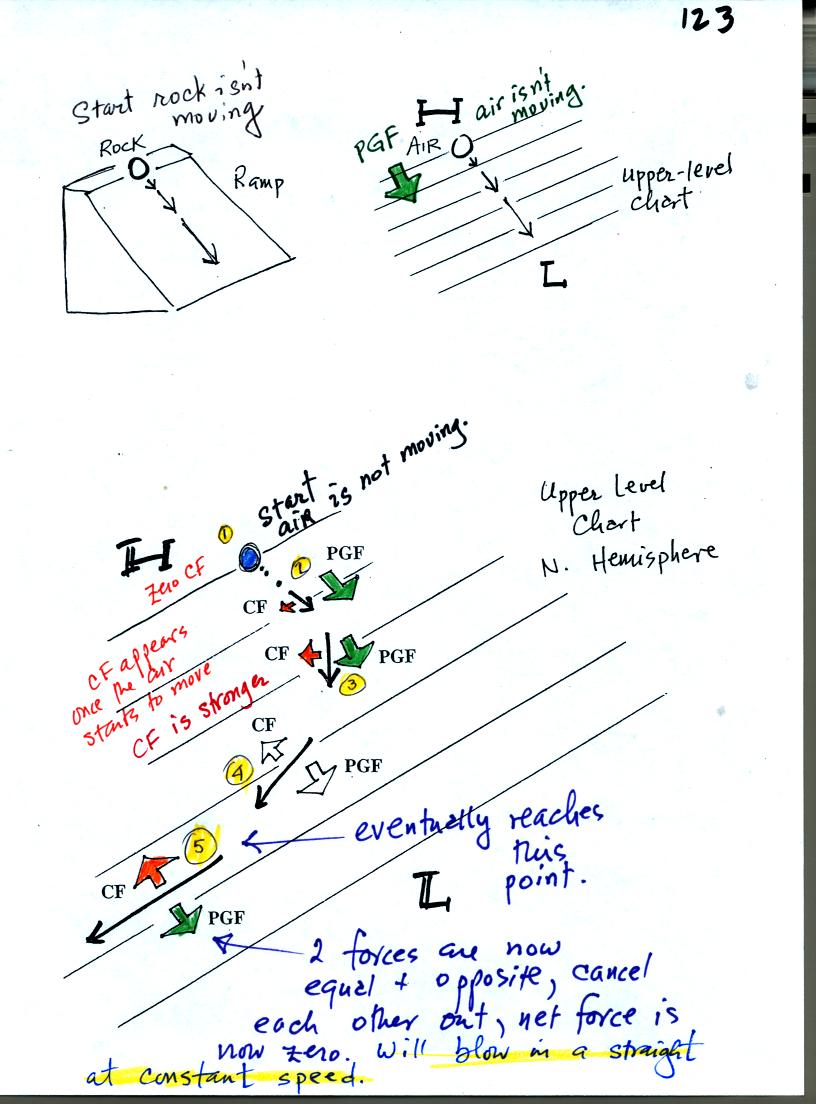 123
Start rock isn't
moving
ROCK
Ramp
H air isn't
moving.
PGF
AIR
upper-level
chart
L
start
air is not moving.
1
H
zero CF
2
PGF
CF
Upper Level
Chart
N. Hemisphere
CF appears
once the air
starts to move
CF is stronger
CF
PGF
3
CF
4
PGF
5
eventually reaches
this
point.
CF
PGF
L
2 forces are now
equal + opposite, cancel
each other out, net force is
now zero. Will blow in a straight
at constant speed.